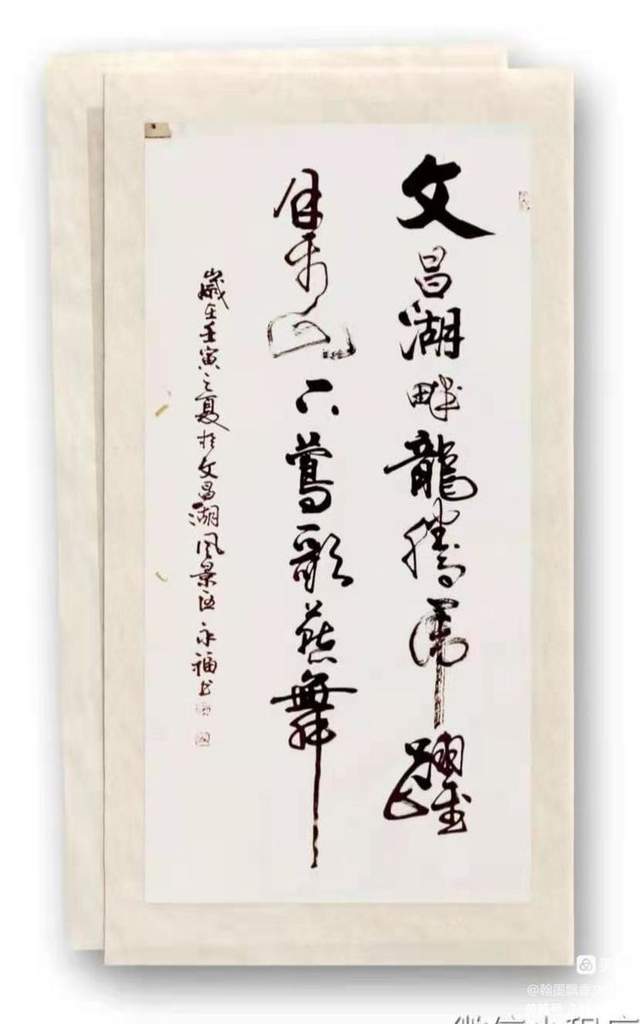 文昌湖畔龍騰虎躍
山下鶯歌燕舞
歲在壬寅之夏於文昌湖风景区永福书
@翰墨飘香